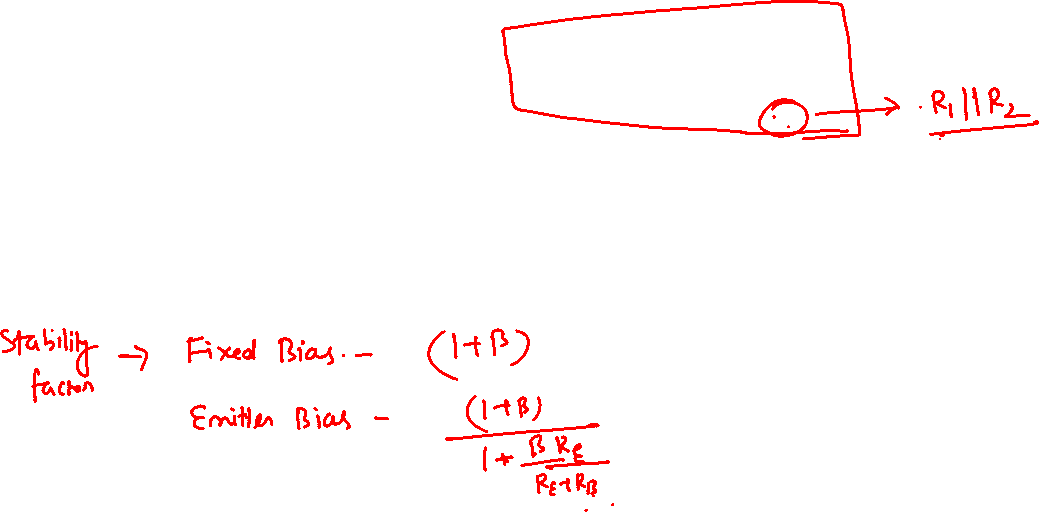 R₁||R₂
Stability factor → Fixed Bias - (1+β)
Emitter Bias - (1+β) / (1 + βR_E / (R_E+R_B))